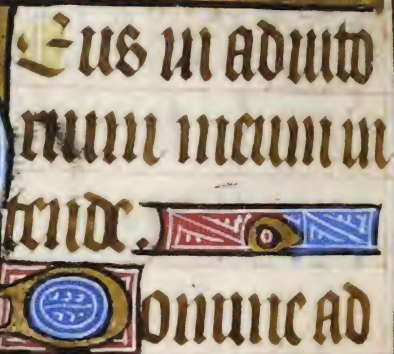 Eus in adiuto
rium meum in
tende.
Domine ad